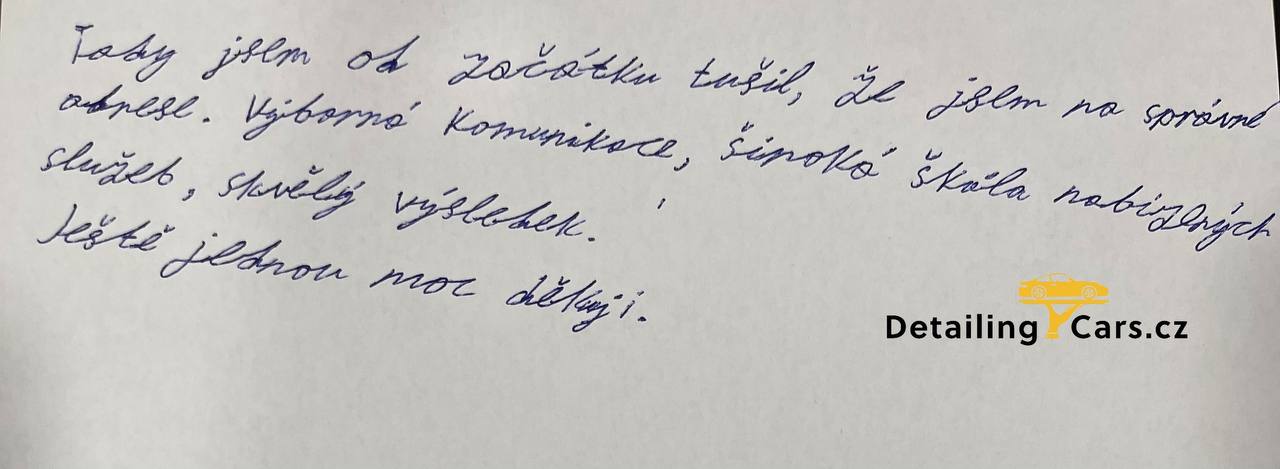 Tady jsem od začátku tušil, že jsem na správné
adrese. Výborná komunikace, široká škála nabízených
služeb, skvělý výsledek.
Ještě jednou moc děkuji.
Detailing Cars.cz